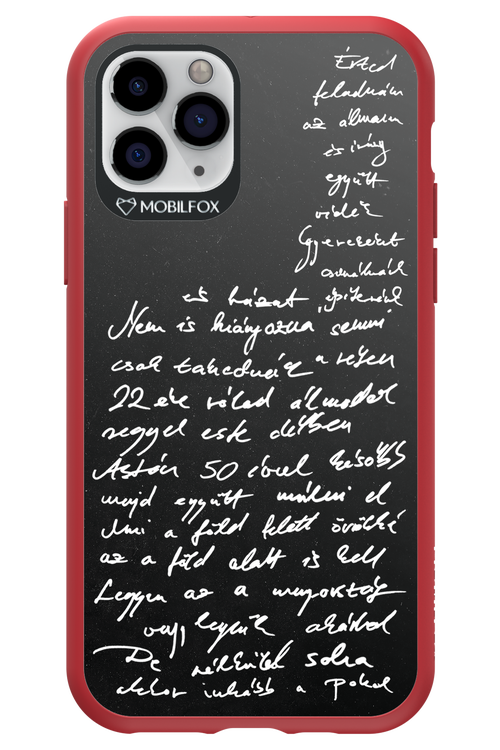 MOBILFOX
Érted
feladnám
az álmaim
és így
együtt
Gyerekeket
csinálnánk
és házat építenénk
Nem is hiányozna semmi
csak takarodnánk a
22 éve rólad álmodok
reggel este délben
Aztán 50 évvel később
majd együtt múlni el
Ami a föld felett örökké
az a föld alatt is kell
Legyen az a menyország
vagy legyünk akárhol
De nélküled soha
akkor inkább a Pokol